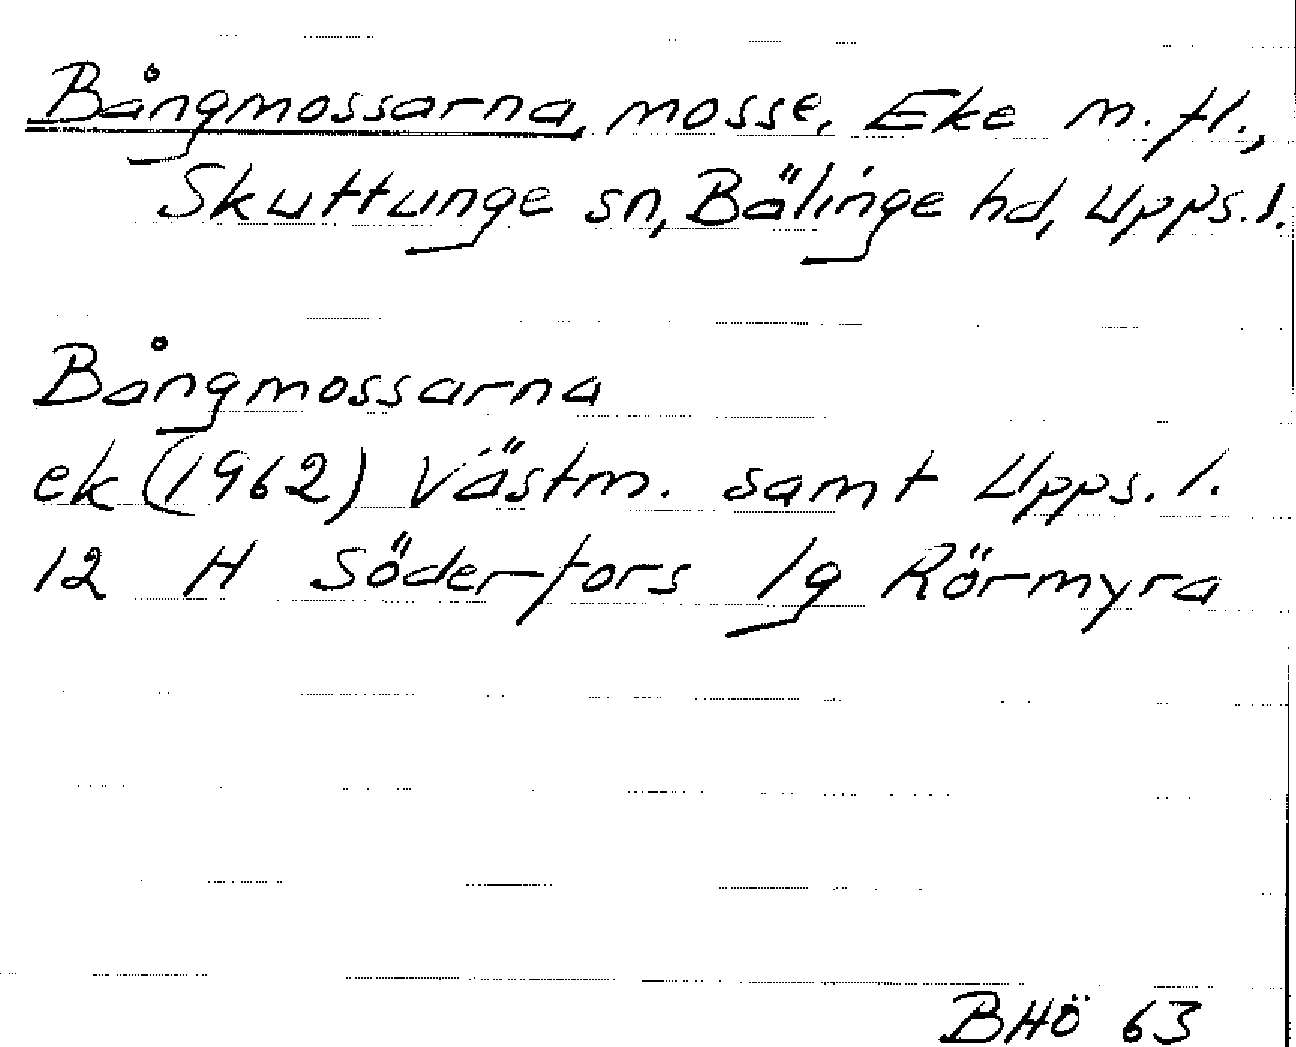 Bångmossarna, mosse, Eke m.fl.,
Skuttunge sn, Bälinge hd, Upps.l.
Bångmossarna
ek (1962) Västm. samt Upps.l.
12 H Söderfors 1g Rörmyra
BHÖ 63